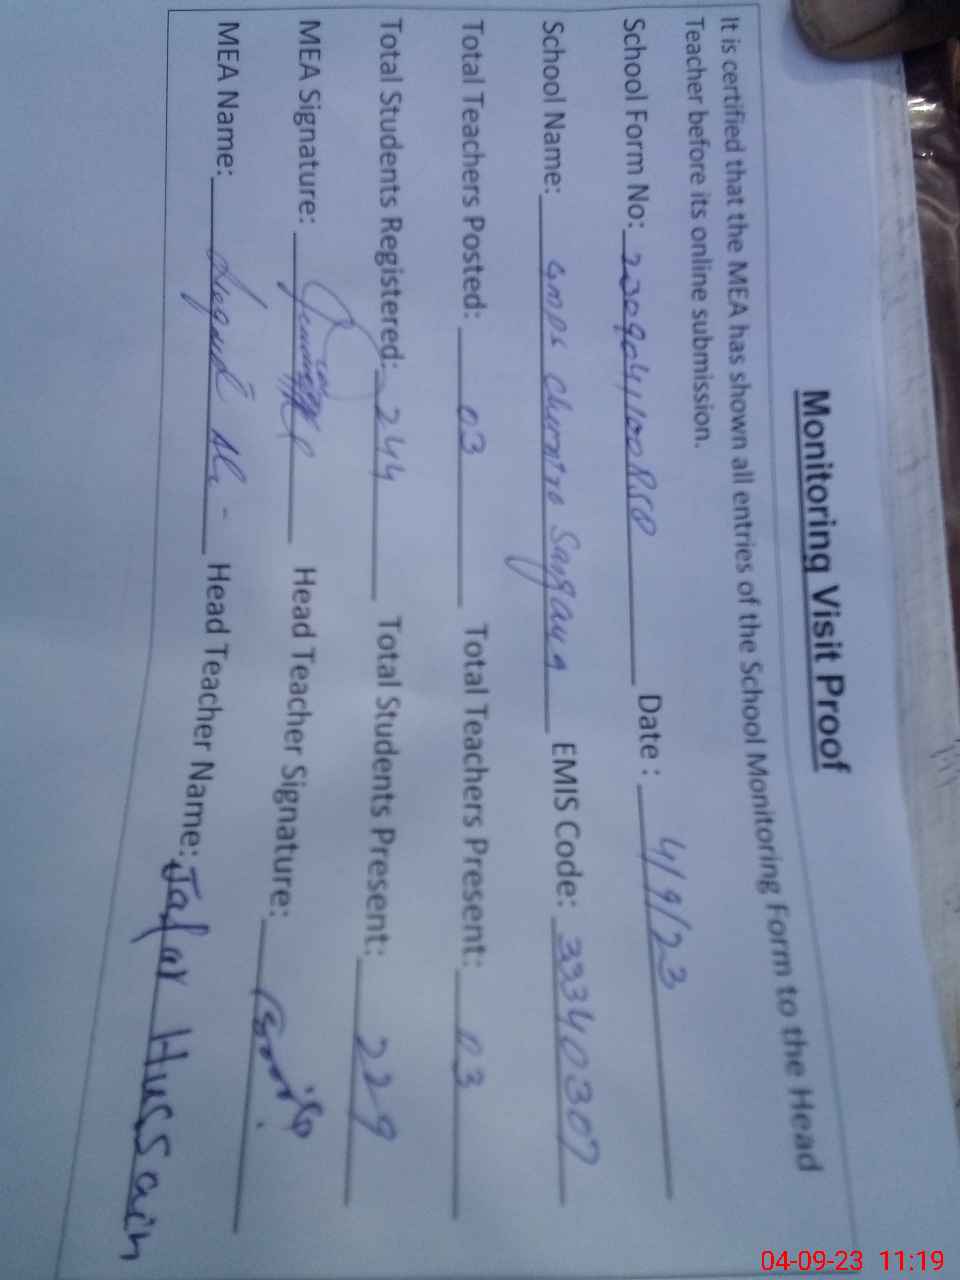 Monitoring Visit Proof
It is certified that the MEA has shown all entries of the School Monitoring Form to the Head
Teacher before its online submission.
School Form No: 230904100850 Date : 4/9/23
School Name: GMPS EMIS Code: 33340307
Total Teachers Posted: 03 Total Teachers Present: 03
Total Students Registered: 244 Total Students Present: 229
MEA Signature: Head Teacher Signature:
MEA Name: Head Teacher Name: Jafar Hussain
04-09-23 11:19